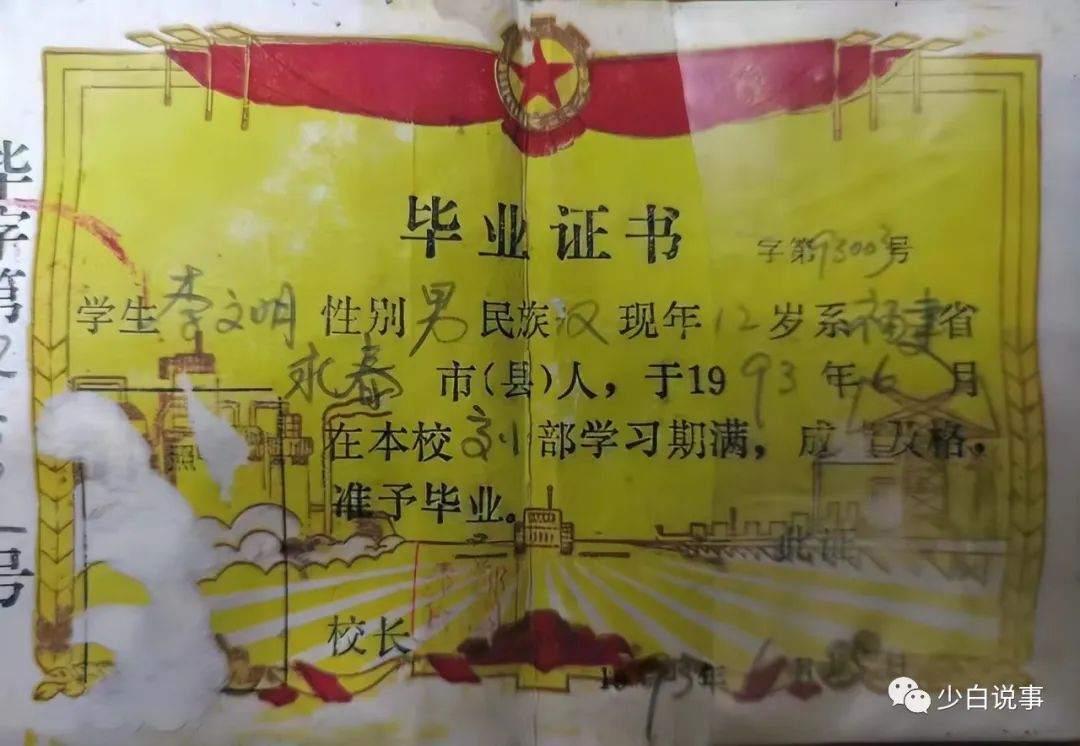 毕业证书
字第93003号
学生李文明性别男民族汉现年12岁系福建省
永春市(县)人，于1993年6月
在本校 部学习期满，成 及格，
准予毕业。
此证
校长
1993年6月 日
毕字第
号
照
少白说事